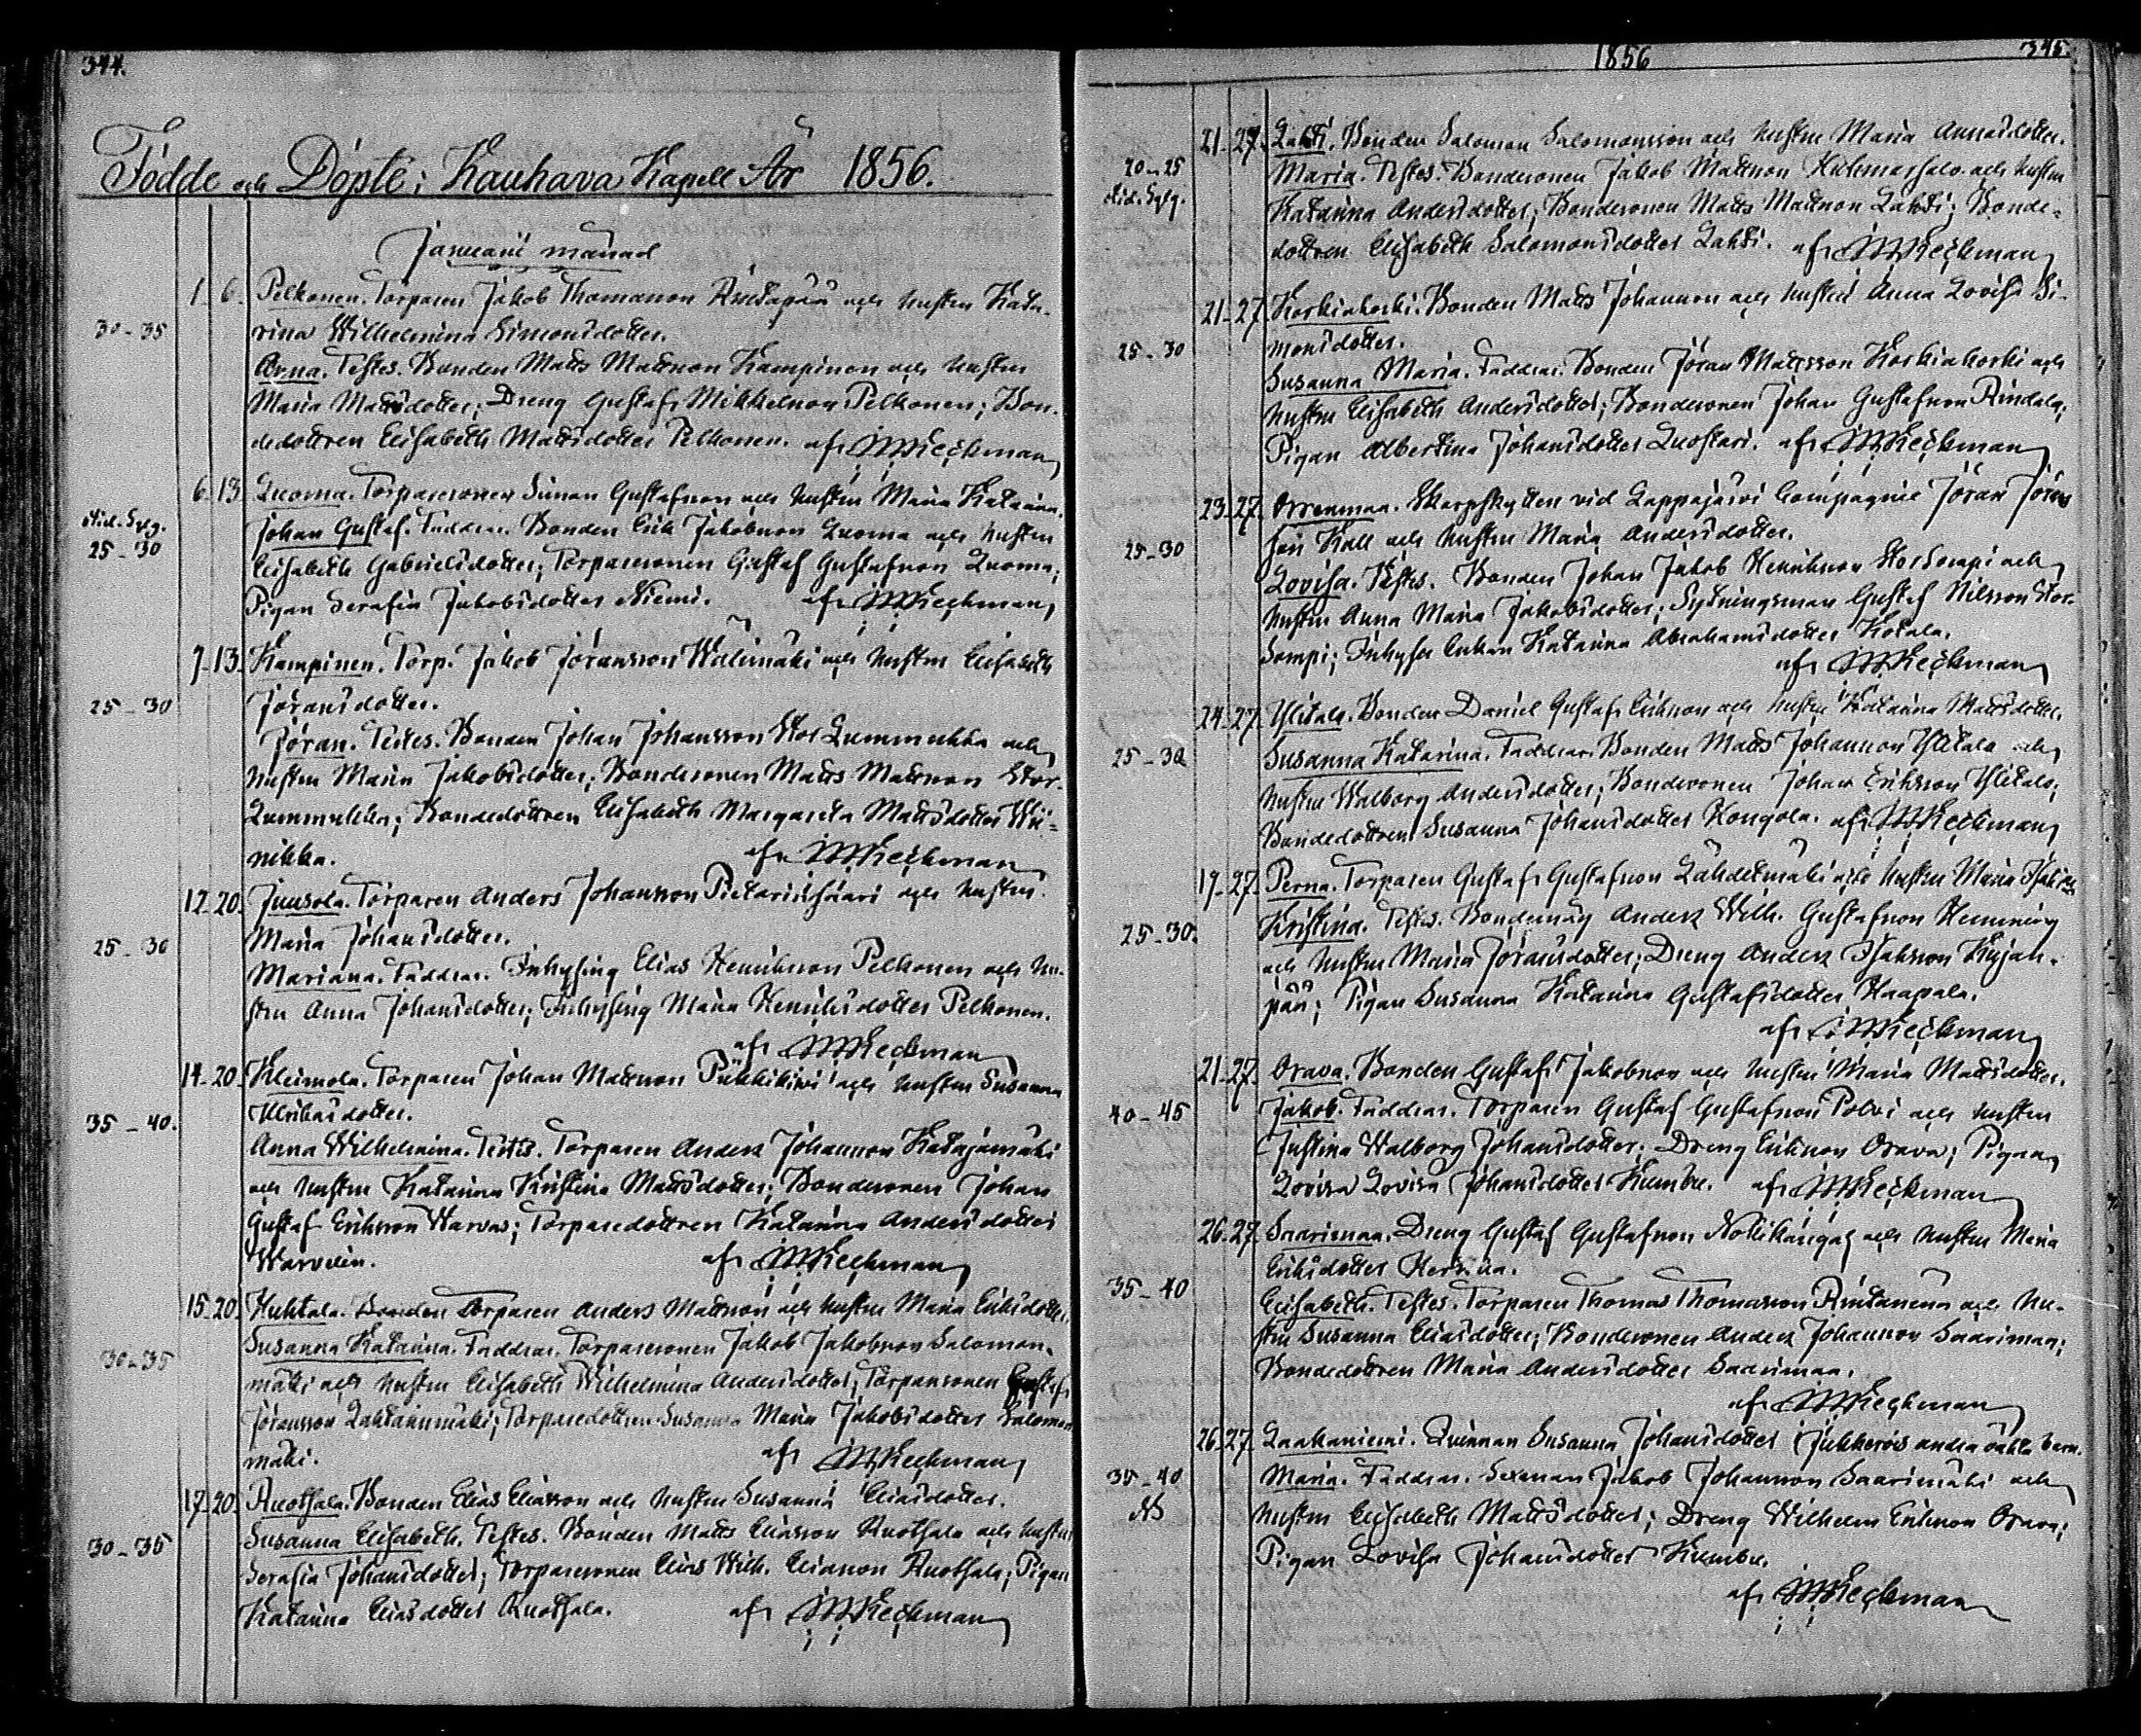 344.
Födde och Döpte i Kauhava Kapell År 1856.
Januarii månad
1. 6. Pelkonen. Torparen Jakob Thomasson och hustru Kata-
30-35 rina Wilhelmina Simonsdotter.
Anna. Testes. Bonden Matts Mattsson Kampinen och hustru
Maria Mattsdotter; Dreng Gustaf Mikkelsson Pelkonen; Bon-
dedottren Elisabeth Mattsdotter Pelkonen. af Keckman
6. 13. Luoma. Torparesonen Simon Gustafsson och hustru Maria Katarina.
Johan Gustaf. Faddrar. Bonden Erik Jakobsson Luoma och hustru
25-30 Elisabeth Gabrielsdotter; Torparesonen Gustaf Gustafsson Luoma;
Pigan Serafia Jakobsdotter Niemi. af Keckman
7. 13. Kampinen. Torp. Jakob Jöransson Wälimäki och hustru Elisabeth
25-30 Jöransdotter.
Jöran. Testes. Bonden Johan Johansson Stor Lummukka och
hustru Maria Jakobsdotter; Bondesonen Matts Mattsson Stor-
Lummukka; Bondedottren Elisabeth Margareta Mattsdotter Wii-
nikka. af Keckman
12. 20. Juusola. Torparen Anders Johansson Pietarinsaari och hustru
25-30 Maria Johansdotter.
Mariana. Faddrar. Inhysing Elias Henriksson Pelkonen och hu-
stru Anna Johansdotter; Inhysing Maria Henriksdotter Pelkonen.
af Keckman
14. 20. Kleimola. Torparen Johan Mattsson och hustru Susanna
35-40. Ulrikasdotter.
Anna Wilhelmina. Testes. Torparen Anders Johansson Katajamäki
och hustru Katarina Kristina Mattsdotter; Bondesonen Johan
Gustaf Eriksson Warvas; Torparedottren Katarina Andersdotter
af Keckman
15. 20. Huhtala. Torparen Anders Mattsson och hustru Maria Eriksdotter.
Susanna Katarina. Faddrar. Torparesonen Jakob Jakobsson Salomon-
30-35 mäki och hustru Elisabeth Wilhelmina Andersdotter; Torparesonen Gustaf
Jöransson; Torparedottren Susanna Maria Jakobsdotter Salomon-
mäki. af Keckman
17. 20. Ruotsala. Bonden Elias Eliasson och hustru Susanna Eliasdotter.
Susanna Elisabeth. Testes. Bonden Matts Eliasson Ruotsala och hustru
30-35 Serafia Johansdotter; Torparesonen Elias Wilh. Eliasson Ruotsala; Pigan
Katarina Eliasdotter Ruotsala. af Keckman
1856 345.
21. 27. Lahti. Bonden Salomon Salomonsson och hustru Maria Annasdotter.
20-25 Maria. Testes. Bondesonen Jakob Mattsson och hustru
Katarina Andersdotter; Bondesonen Matts Mattsson Lahti; Bonde-
dottren Elisabeth Salomonsdotter Lahti. af Keckman
21. 27. Korkiakoski. Bonden Matts Johansson och hustru Anna Lovisa Si-
25-30 monsdotter.
Susanna Maria. Faddrar. Bonden Jöran Mattsson Korkiakoski och
hustru Elisabeth Andersdotter; Bondesonen Johan Gustafsson Rindala;
Pigan Albertina Johansdotter Luostari. af Keckman
23. 27. Orrenmaa. Skarpskytten vid Lappajärvi Compagnie Jöran Jörans-
25-30 son Kall och hustru Maria Andersdotter.
Lovisa. Testes. Bonden Johan Jakob Henriksson Stor Sompi och
hustru Anna Maria Jakobsdotter; Sytningsman Gustaf Nilsson Stor-
Sompi; Inhyses Enkan Katarina Abrahamsdotter Kotala.
af Keckman
24. 27. Ylitalo. Bonden Daniel Gustaf Eriksson och hustru Katarina Mattsdotter.
25-30 Susanna Katarina. Faddrar. Bonden Matts Johansson Ylitalo och
hustru Walborg Andersdotter; Bondesonen Johan Eriksson Ylitalo;
Bondedottren Susanna Johansdotter Kongola. af Keckman
19. 27. Perna. Torparen Gustaf Gustafsson Lähdetmäki och hustru Maria
25-30. Kristina. Testes. Bondemåg Anders Wilh. Gustafsson Hemming
och hustru Maria Jöransdotter; Dreng Anders Isaksson Kujan-
pää; Pigan Susanna Katarina Gustafsdotter Haapala.
af Keckman
21. 27. Orava. Bonden Gustaf Jakobsson och hustru Maria Mattsdotter.
40-45 Jakob. Faddrar. Torparen Gustaf Gustafsson Polvi och hustru
Justina Walborg Johansdotter; Dreng Eriksson Orava; Pigan
Lovisa Lovisa Johansdotter. af Keckman
26. 27. Saarimaa. Dreng Gustaf Gustafsson och hustru Maria
35-40 Eriksdotter.
Elisabeth. Testes. Torparen Thomas Thomasson och hu-
stru Susanna Eliasdotter; Bondesonen Anders Johansson Saarimaa;
Bondedottren Maria Andersdotter Saarimaa.
af Keckman
26. 27. Laakaniemi. Qvinnan Susanna Johansdotter andra oäkta barn.
35-40 Maria. Faddrar. Sexman Jakob Johansson Saarimäki och
hustru Elisabeth Mattsdotter; Dreng Wilhelm Eriksson Orava;
Pigan Lovisa Johansdotter.
af Keckman